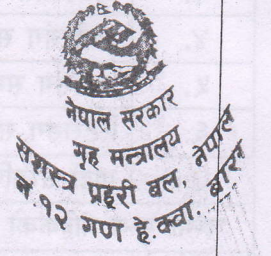 नेपाल सरकार
गृह मन्त्रालय
सशस्त्र प्रहरी बल, नेपाल
नं. १२ गण हे.क्वा. बारा